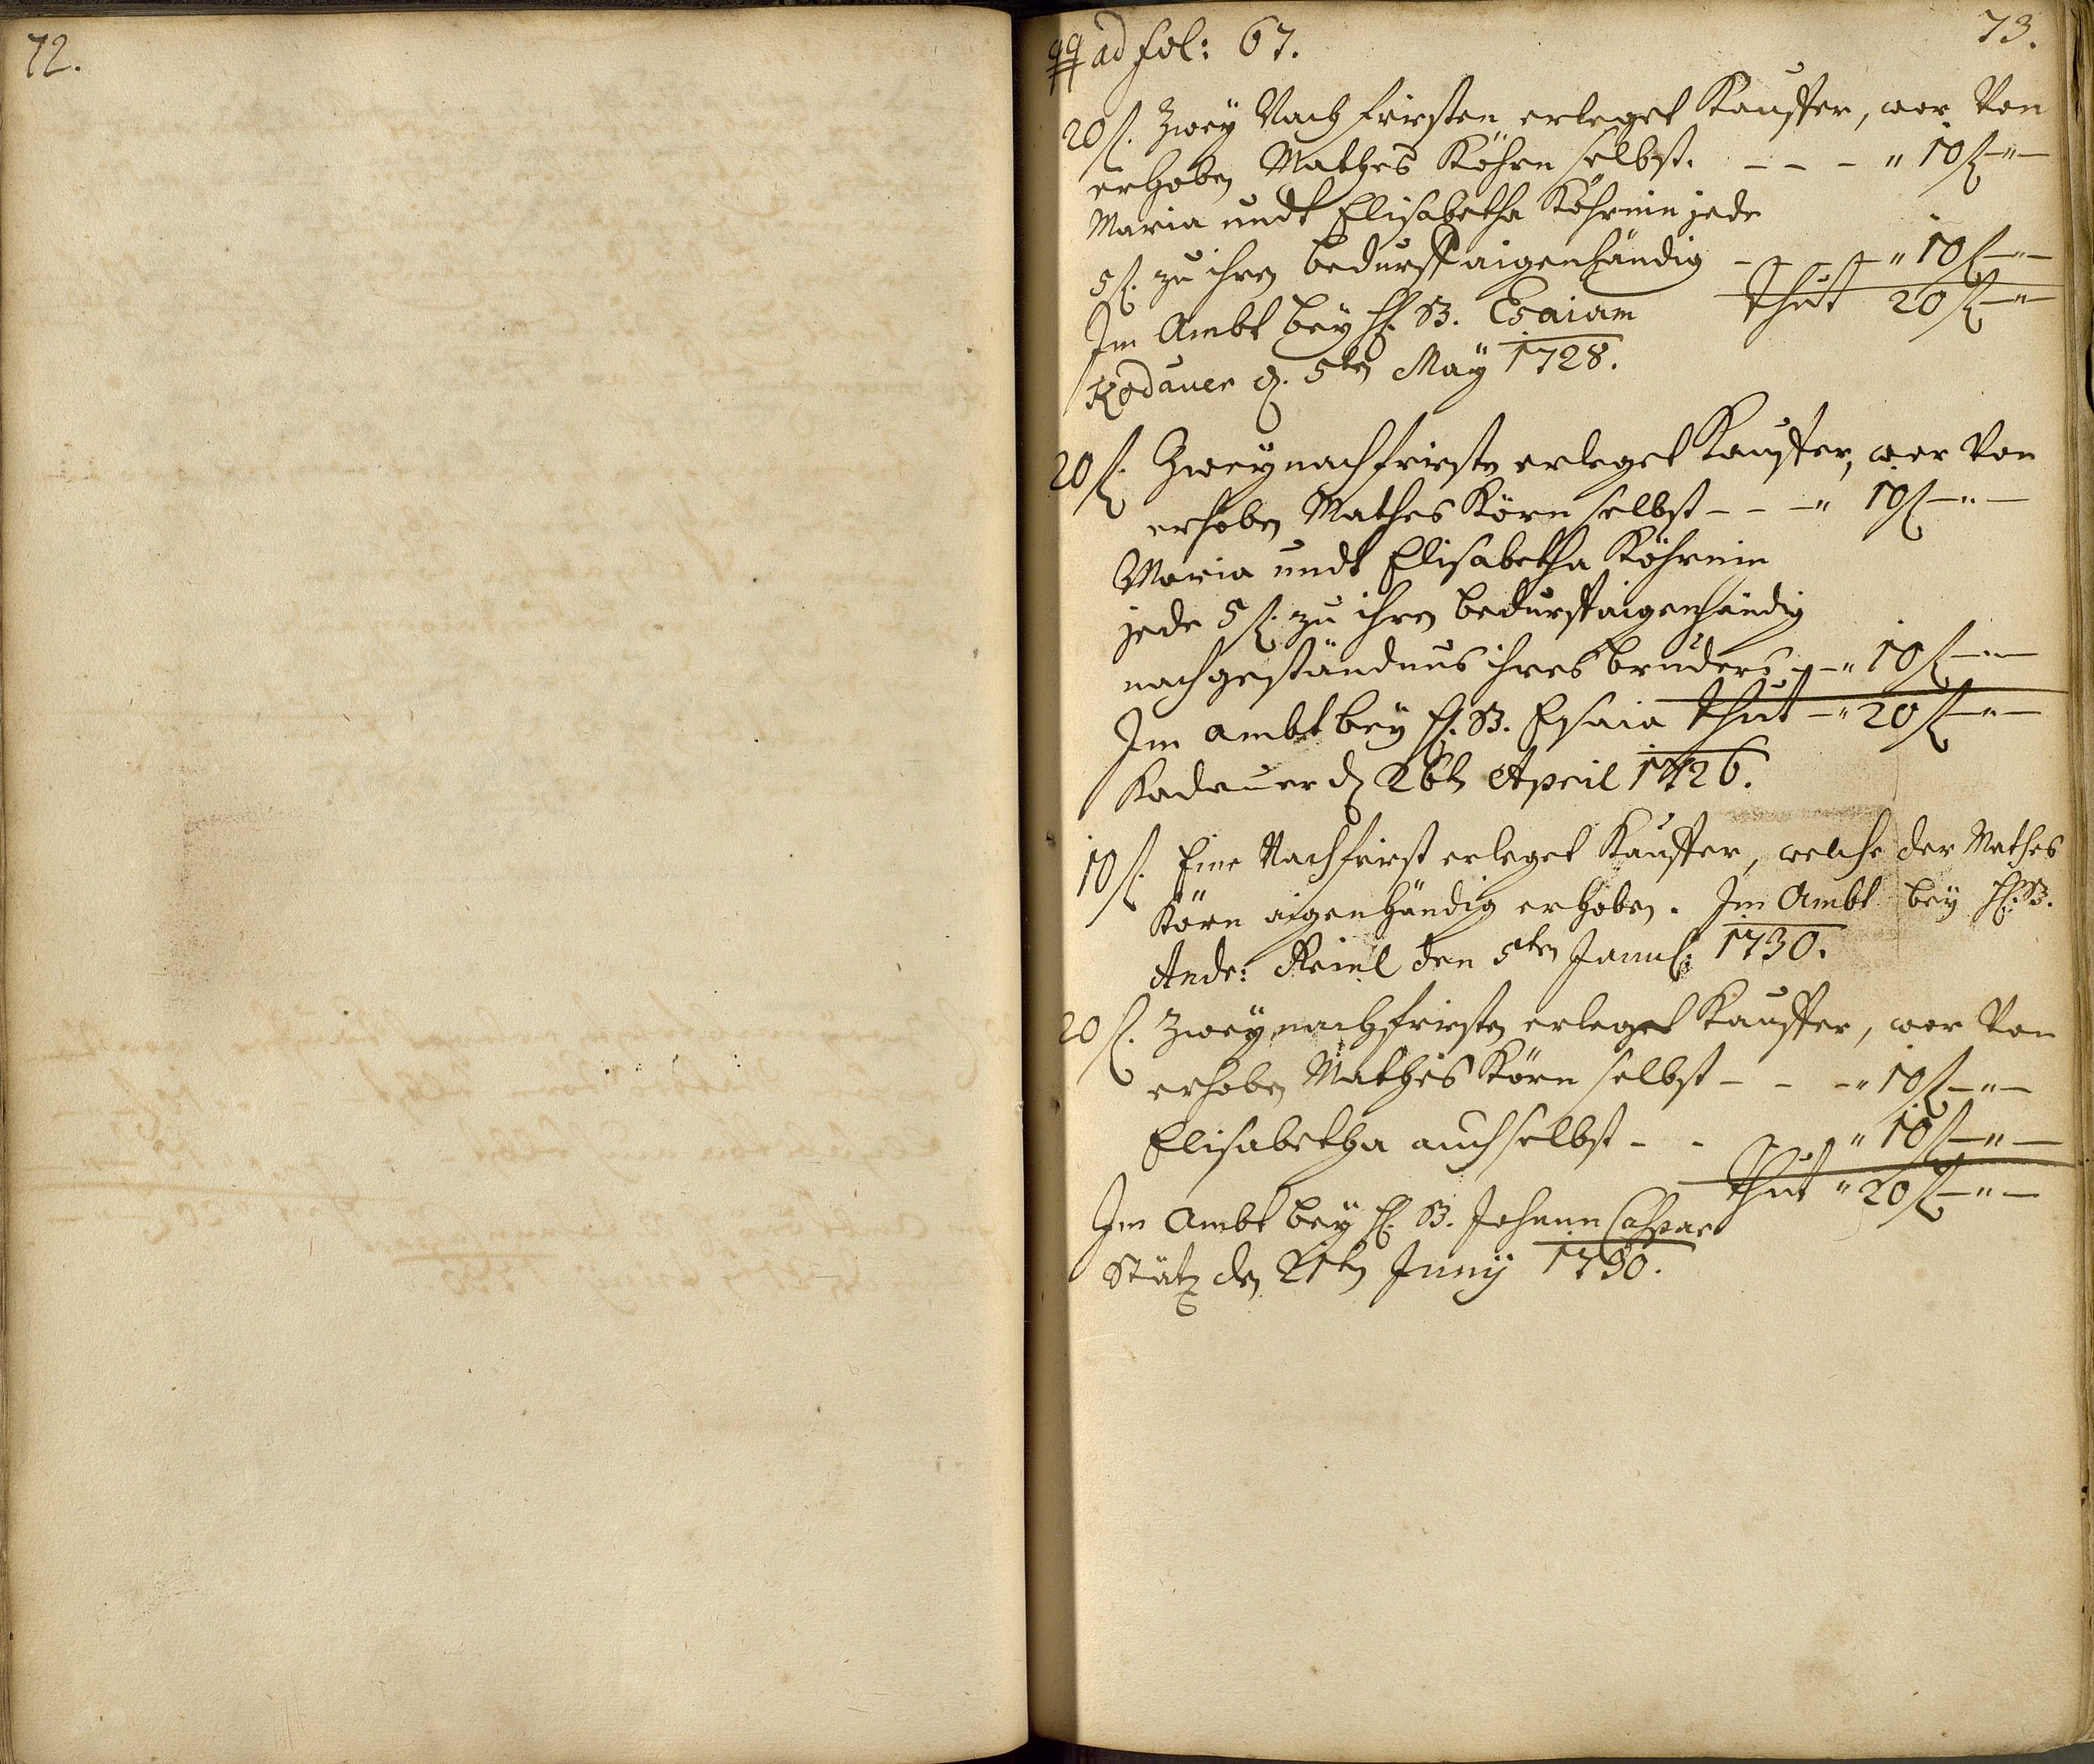 72.
73.
ad fol: 67.
20 f. Zweÿ Nach fristen erleget Kauffer, wor Von
erhoben Mathes Köhrn selbst. - - - " 10 f - " -
Maria undt Elisabetha Köhrnin jede
5 f. zu ihren bedurff aigenhändig - - - " 10 f - " -
thut 20 f - " -
Im Ambt beÿ H. B. Esaiam
Kodauer d. 5ten Maÿ 1728.
20 f. Zweÿ nach fristen erleget Kauffer, wor Von
erhoben Mathes Körn selbst - - - " 10 f - " -
Maria undt Elisabetha Köhrnin
jede 5 f. zu ihren bedurff aigenhändig
nach geständnus ihres bruders - - " 10 f - " -
Im ambt beÿ H. B. Esaia thut - " 20 f - " -
Kadauer d 26t April 1726.
10 f. Eine Nachfrist erleget Kauffer, welche der Mathes
Körn aigenhändig erhoben. Im Ambt beÿ H. B.
Andr: Reinl den 5ten Janu: 1730.
20 f. Zweÿ nachfristen erleget Kauffer, wor Von
erhoben Mathes Körn selbst - - - " 10 f - " -
Elisabetha auch selbst - - - " 10 f - " -
thut " 20 f - " -
Im Ambt beÿ H. B. Johann Caspar
Stätz den 21ten Junÿ 1730.